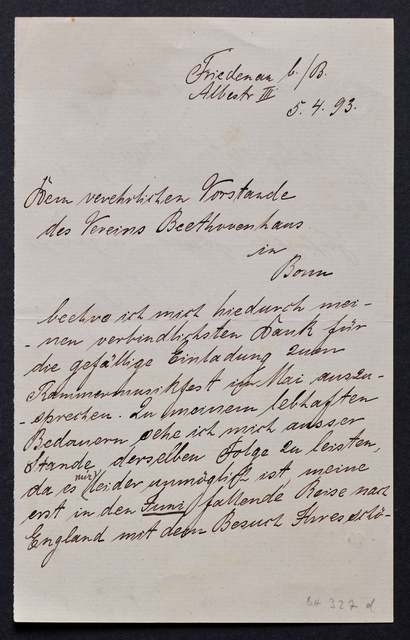 Friedenau b./B.
Albestr. III
5. 4. 93.
Dem verehrlichen Vorstande
des Vereins Beethovenhaus
in
Bonn
beehre ich mich hiedurch mei-
-nen verbindlichsten Dank für
die gefällige Einladung zum
Kammermusikfest im Mai auszu-
-sprechen. Zu meinem lebhaften
Bedauern sehe ich mich ausser
Stande, derselben Folge zu leisten,
da es mir leider unmöglich ist, meine
erst in den Juni fallende Reise nach
England mit dem Besuch Ihres schö-
BH 327 d